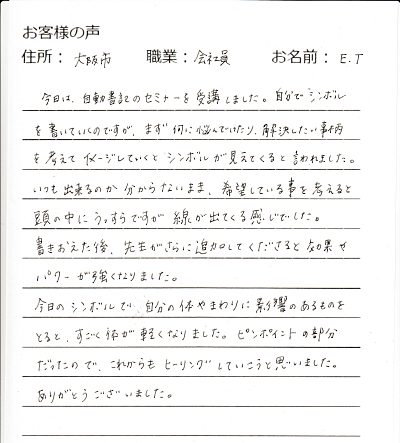 お客様の声
住所： 大阪市 職業： 会社員 お名前： E.T
今日は、自動書記のセミナーを受講しました。自分でシンボル
を書いていくのですが、まず何に悩んでいたり、解決したい事柄
を考えて イメージしていくと シンボルが見えてくると 言われました。
いつも出来るのか 分からないまま、希望している事を考えると
頭の中に うっすらですが 線が出てくる感じでした。
書きおえた後、先生がさらに追加してくださると 効果や
パワーが強くなりました。
今日のシンボルで、自分の体やまわりに影響のあるものを
とると、すごく体が軽くなりました。ピンポイントの部分
だったので、これからも ヒーリングしていこうと思いました。
ありがとうございました。